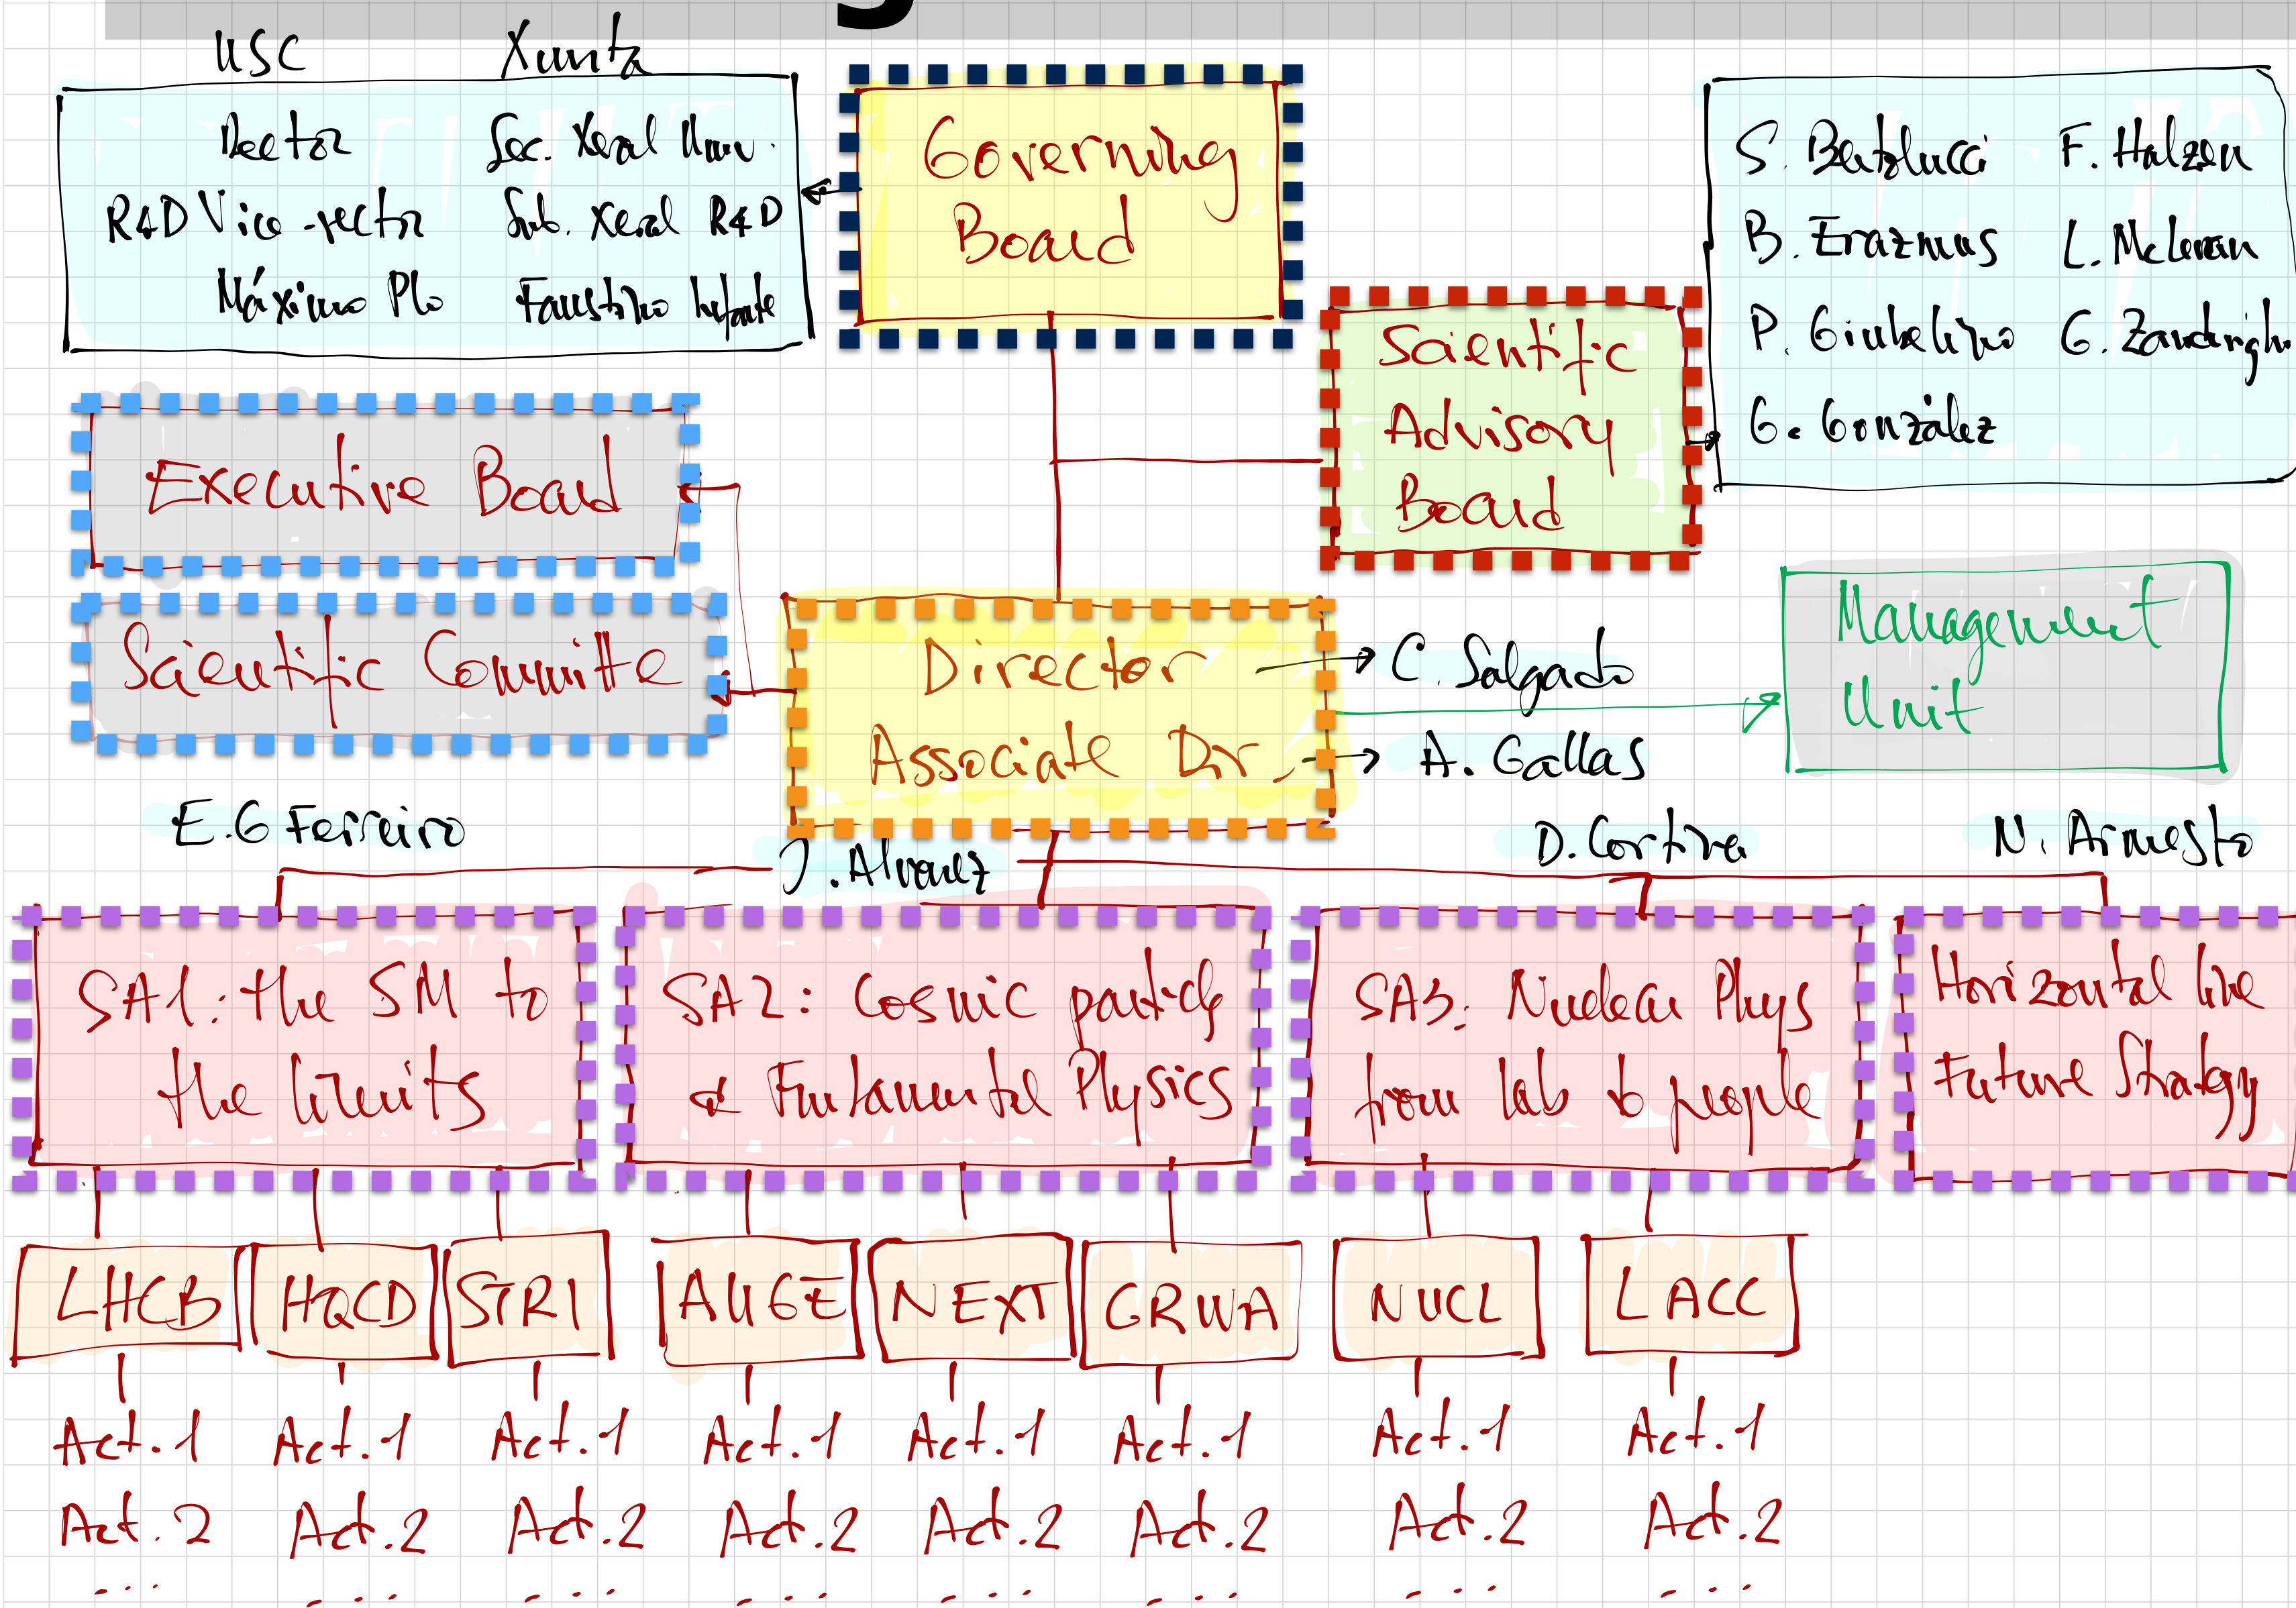 USC Xunta
Rector Sec. Xeral Univ.
R&D Vice-rector Sub. Xeral R&D
Máximo Plo Faustino Infante
Governing
Board
S. Bertolucci F. Halzen
B. Erazmus L. McLerran
P. Giubelino G. Zanderighi
G. González
Scientific
Advisory
Board
Executive Board
Scientific Committe
Director
C. Salgado
Associate Dir.
A. Gallas
Management
Unit
E.G Ferreiro
J. Alvarez
D. Cortina
N. Armesto
SA1: the SM to
the limits
SA2: Cosmic particle
& Funtamental Physics
SA3: Nuclear Phys
from lab to people
Horizontal line
Future Strategy
LHCB HQCD STRI AUGE NEXT GRWA NUCL LACC
Act.1 Act.1 Act.1 Act.1 Act.1 Act.1 Act.1 Act.1
Act.2 Act.2 Act.2 Act.2 Act.2 Act.2 Act.2 Act.2
... ... ... ... ... ... ... ...